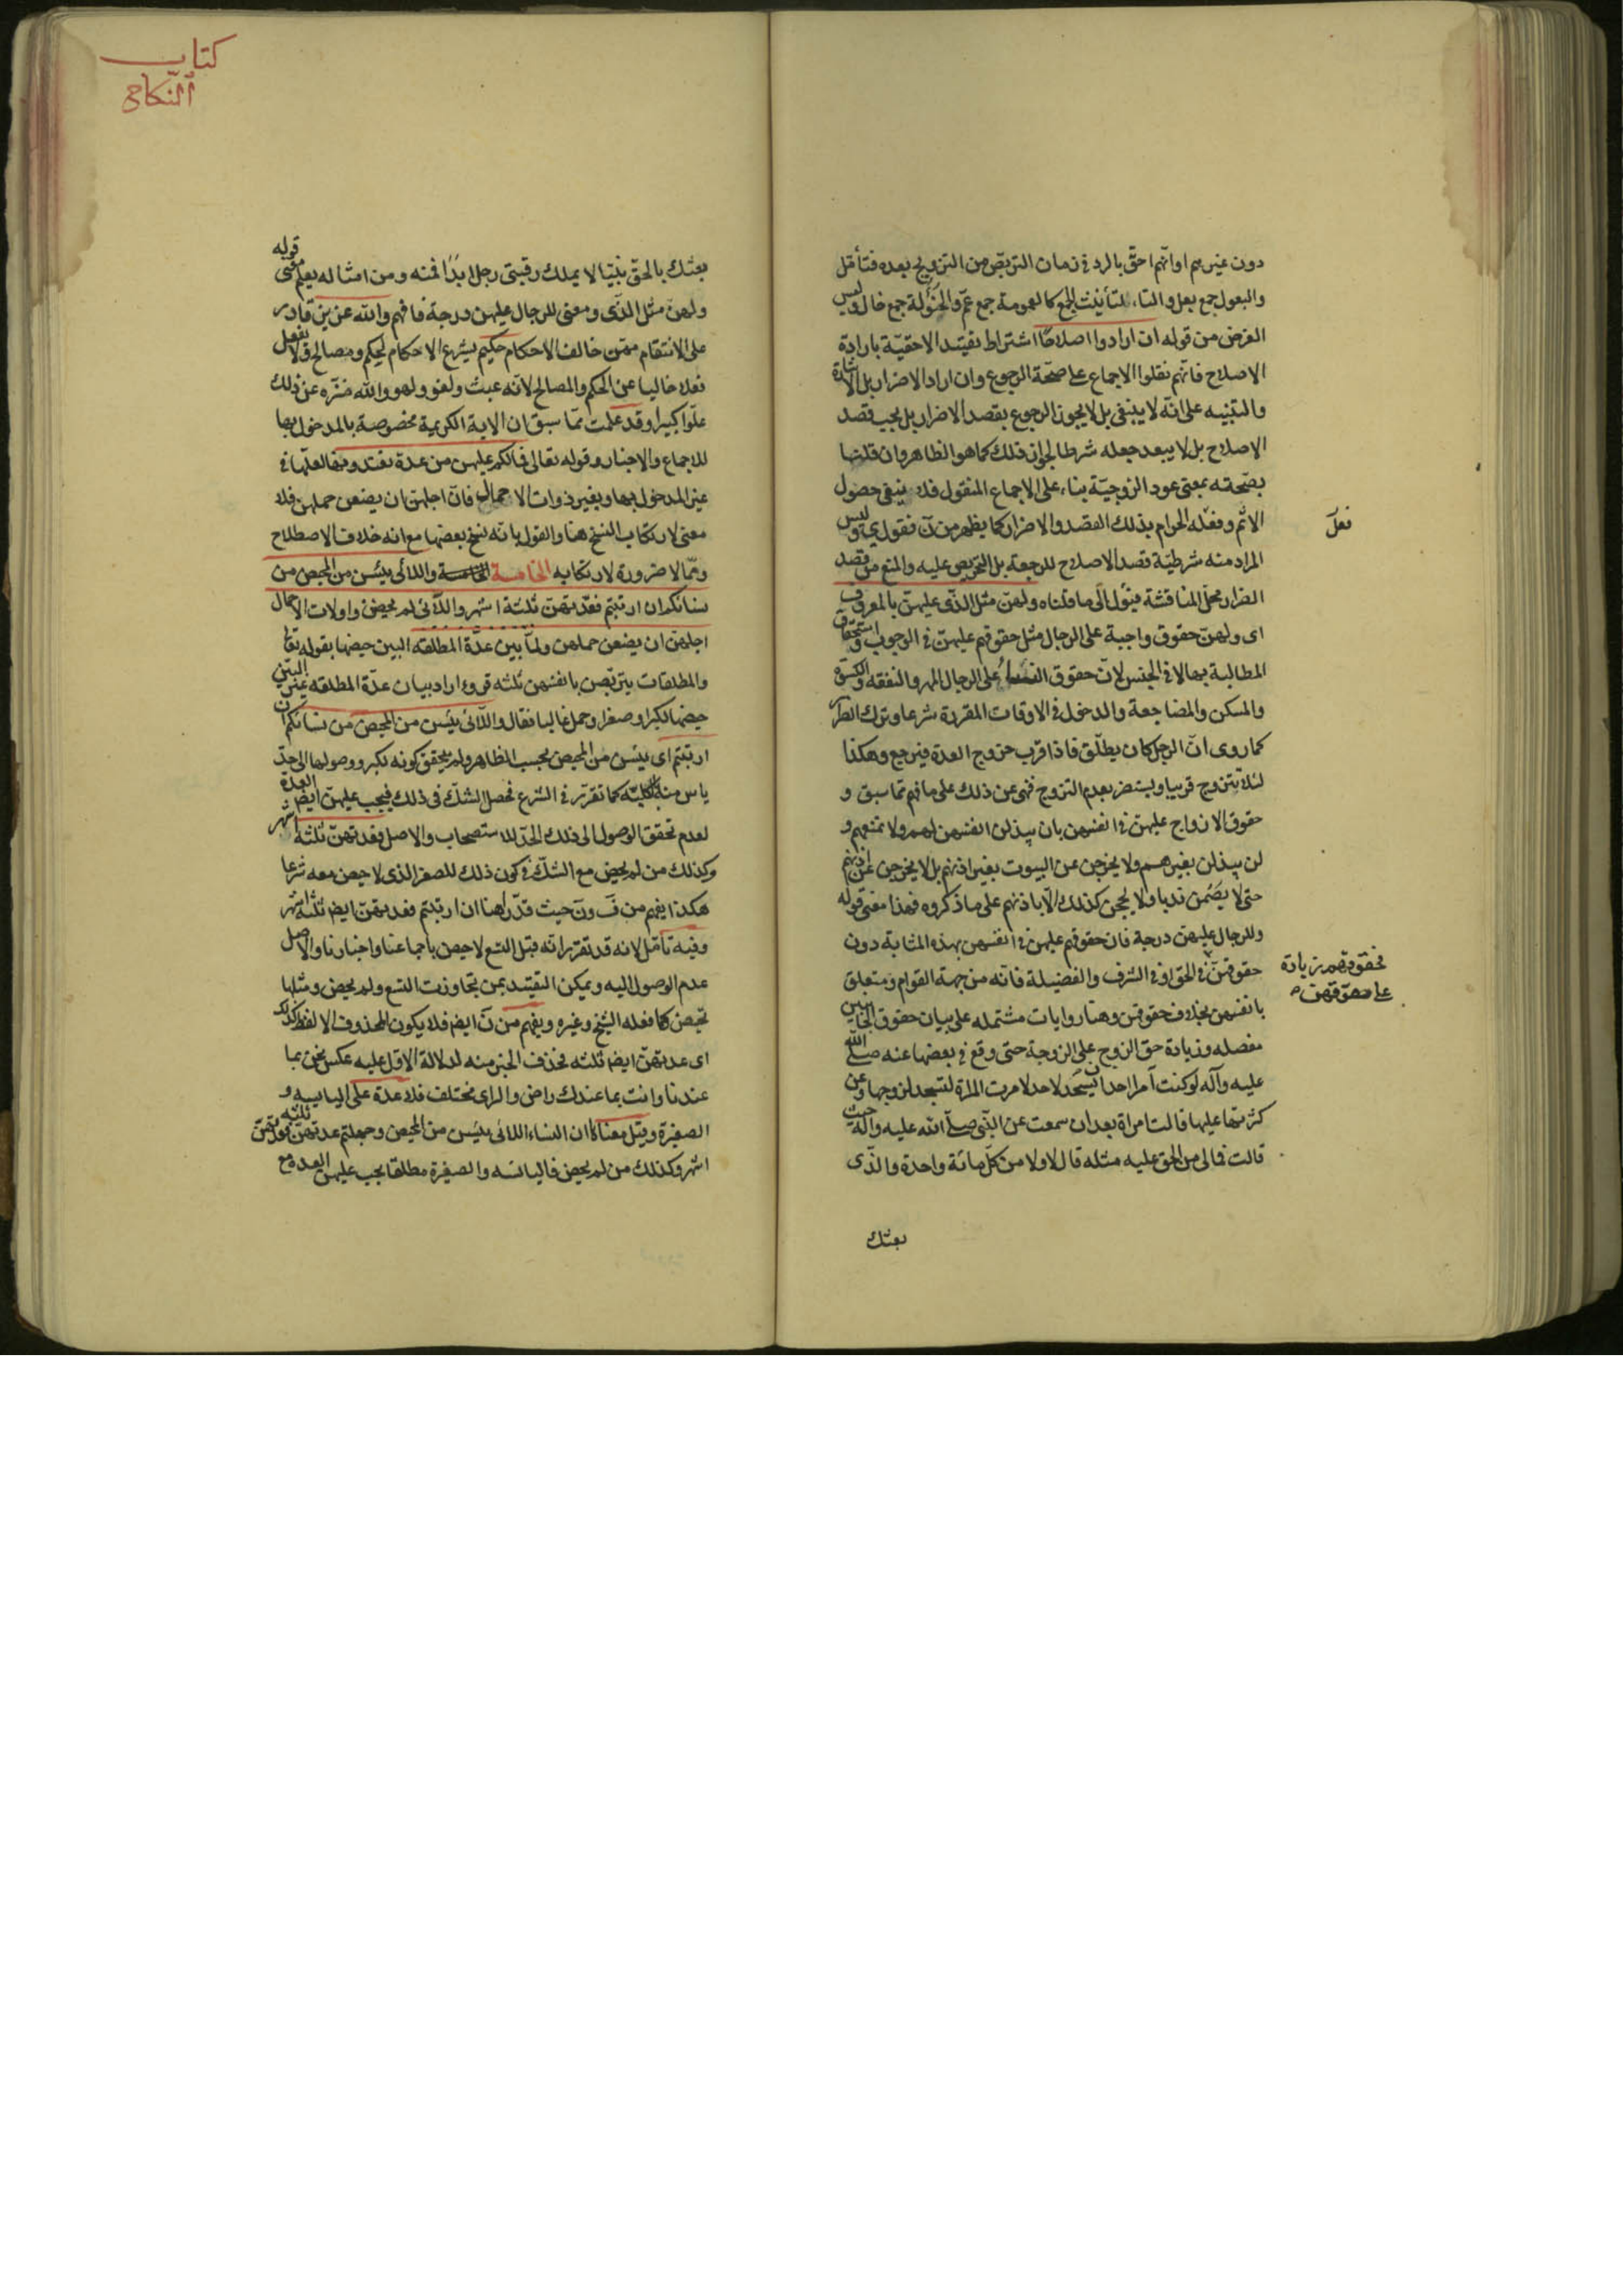 دون غيرهم او انّهم احقّ بالرد في زمان التربّص من التزويج بعده فتأمّل
والبعول جمع بعل والتاء لتأنيث الجمع كالعمومة جمع عمّ والخؤلة جمع خال وليس
الغرض من قوله ان ارادوا اصلاحًا اشتراط تقييد الاحقيّة بارادة
الاصلاح فانّهم نقلوا الاجماع على صحّة الرجوع وان اراد الاضرار بل الاشارة
والتنبيه على انّه لا ينبغي بل لا يجوز الرجوع بقصد الاضرار بل يجب قصد
الاصلاح بل لا يبعد جعله شرطا لجواز ذلك كما هو الظاهر وان قلنا
بصحّته بمعنى عود الزوجيّة بناء على الاجماع المنقول فلا ينفي حصول
الاثم وفعله الحرام بذلك القصد والاضرار كما يظهر من ن فقول ي وليس
فعل
المراد منه شرطيّة قصد الاصلاح للرجعة بل التحريص عليه والمنع من قصد
الضرار محلّ المناقشة فيؤل الى ما قلناه ولهنّ مثل الذّي عليهنّ بالمعروف
اى ولهنّ حقوق واجبة على الرجال مثل حقوقهم عليهنّ في الوجوب واستحقاق
المطالبة بها لا في الجنس لانّ حقوق النساء على الرجال المهر والنفقه والكسوة
والمسكن والمضاجعة والدخول في الاوقات المقررة شرعا وترك الضرار
كما روى انّ الرجل كان يطلّق فاذا قرب خروج العدة فيرجع وهكذا
لئلا يتزوج قريبا ويستضر بعدم التزوج فنهى عن ذلك على ما فهم ممّا سبق و
حقوق الازواج عليهنّ في انفسهن بان يبذلن انفسهن لهم ولا تمنعهم و
لن يبذلن بغيرهم ولا يخرجن عن البيوت بغير اذنهم بل لا يخرجن عن اذنهم
حتى لا يصمن ندبا ولا يحجن كذلك الّا باذنهم على ما ذكروه فهذا معنى قوله
وللرجال عليهنّ درجة فان حقوقهم عليهن في انفسهن بهذه المثابة دون
حقوقهنّ في الحق او في الشرف والفضيلة فانّه من جهة القوام ومتعلق
فحقوقهم زيادة
على حقوقهنّ
بانفسهن بخلاف حقوقهن وهنا روايات مشتمله على بيان حقوق الجانبين
مفصله وزيادة حق الزوج على الزوجة حتى وقع في بعضها عنه صلى الله
عليه وآله لو كنت آمرا احدا ان يسجد لاحد لامرت المراة لتسجد لزوجها وعن
كثرتها عليها قالت امراة بعد ان سمعت عن النّبى صلّى الله عليه وآله حيث
قالت فمالى من الحق عليه مثله قال لا ولا من كلّ مائة واحدة والذّى
بعثك
كتاب
النّكاح
بعثك بالحقّ نبيّا لا يملك رقبتى رجل ابدًا فمنه ومن امثاله يعلم معنى قوله
ولهنّ مثل الذّى ومعنى للرجال عليهن درجة فافهم والله عزيز قادر
على الانتقام ممّن خالف الاحكام حكيم يشرع الاحكام لحكم ومصالح ولا يفعل
فعلا خاليا عن الحكم والمصالح لانّه عبث ولغو ولهو والله منزّه عن ذلك
علوّا كبيرا وقد علمت ممّا سبق ان الآية الكريمة مخصوصة بالمدخول بها
للاجماع والاخبار وقوله تعالى فمالكم عليهن من عدة تعتدونها لعلّها في
غير المدخول بها وبغير ذوات الاحمال فانّ اجلهنّ ان يضعن حملهنّ فلا
معنى لارتكاب النسخ هنا والقول بانّه نسخ بعضها مع انه خلاف الاصطلاح
وممّا لا ضرورة لارتكابه الخامسة واللائى يئسن من المحيض من
نسائكم ان ارتبتم فعدّتهنّ ثلثة اشهر واللّائى لم يحضن واولات الاحمال
اجلهنّ ان يضعن حملهن ولمّا بين عدّة المطلقه البين حيضها بقوله تعا
والمطلقات يتربّصن بانفسهن ثلثه قروء اراد بيان عدّة المطلقه غير البيّن
حيضها لكبر او صغر او حمل غالبا فقال واللّائى يئسن من المحيض من نسائكم ان
ارتبتم اى يئسن من المحيض بحسب الظاهر ولم يتحقق كونه بكبر ووصولها الى حدّ
ياس منه بالكليّه كما تقرّر في الشرع فحصل الشكّ في ذلك فيجب عليهن ايض العدة
لعدم تحقق الوصول الى ذلك الحدّ للاستصحاب والاصل فعدتهنّ ثلثه اشهر
وكذلك من لم يحض مع الشكّ في كون ذلك للصغر الذى لا حيض معه شرعا
هكذا يفهم من ف ون حيث قدّراهنا ان ارتبتم فعدتهنّ ايض ثلثة اشهر
وفيه تأمّل لانه قد تقرّر انّه قبل التسع لا حيض باجماعنا واخبارنا والاصل
عدم الوصول اليه ويمكن التقييد بمن تجاوزت التسع ولم يحض ومثلها
تحيض كما فعله الشيخ وغيره ويفهم من ن ايض فلا يكون المحذوف الا لفظ كذلك
اى عدتهنّ ايض ثلثه فحذف الخبر منه لدلالة الاول عليه عكس نحن بما
عندنا وانت بما عندك راض والراى مختلف فلا عدة على اليايسه و
الصغيرة وقيل معناه ان النساء اللائى يئسن من المحيض وجهلتم عدتهنّ فعدتهنّ ثلثه
اشهر وكذلك من لم يحض فاليائسه والصغيرة مطلقا يجب عليهن العده مع